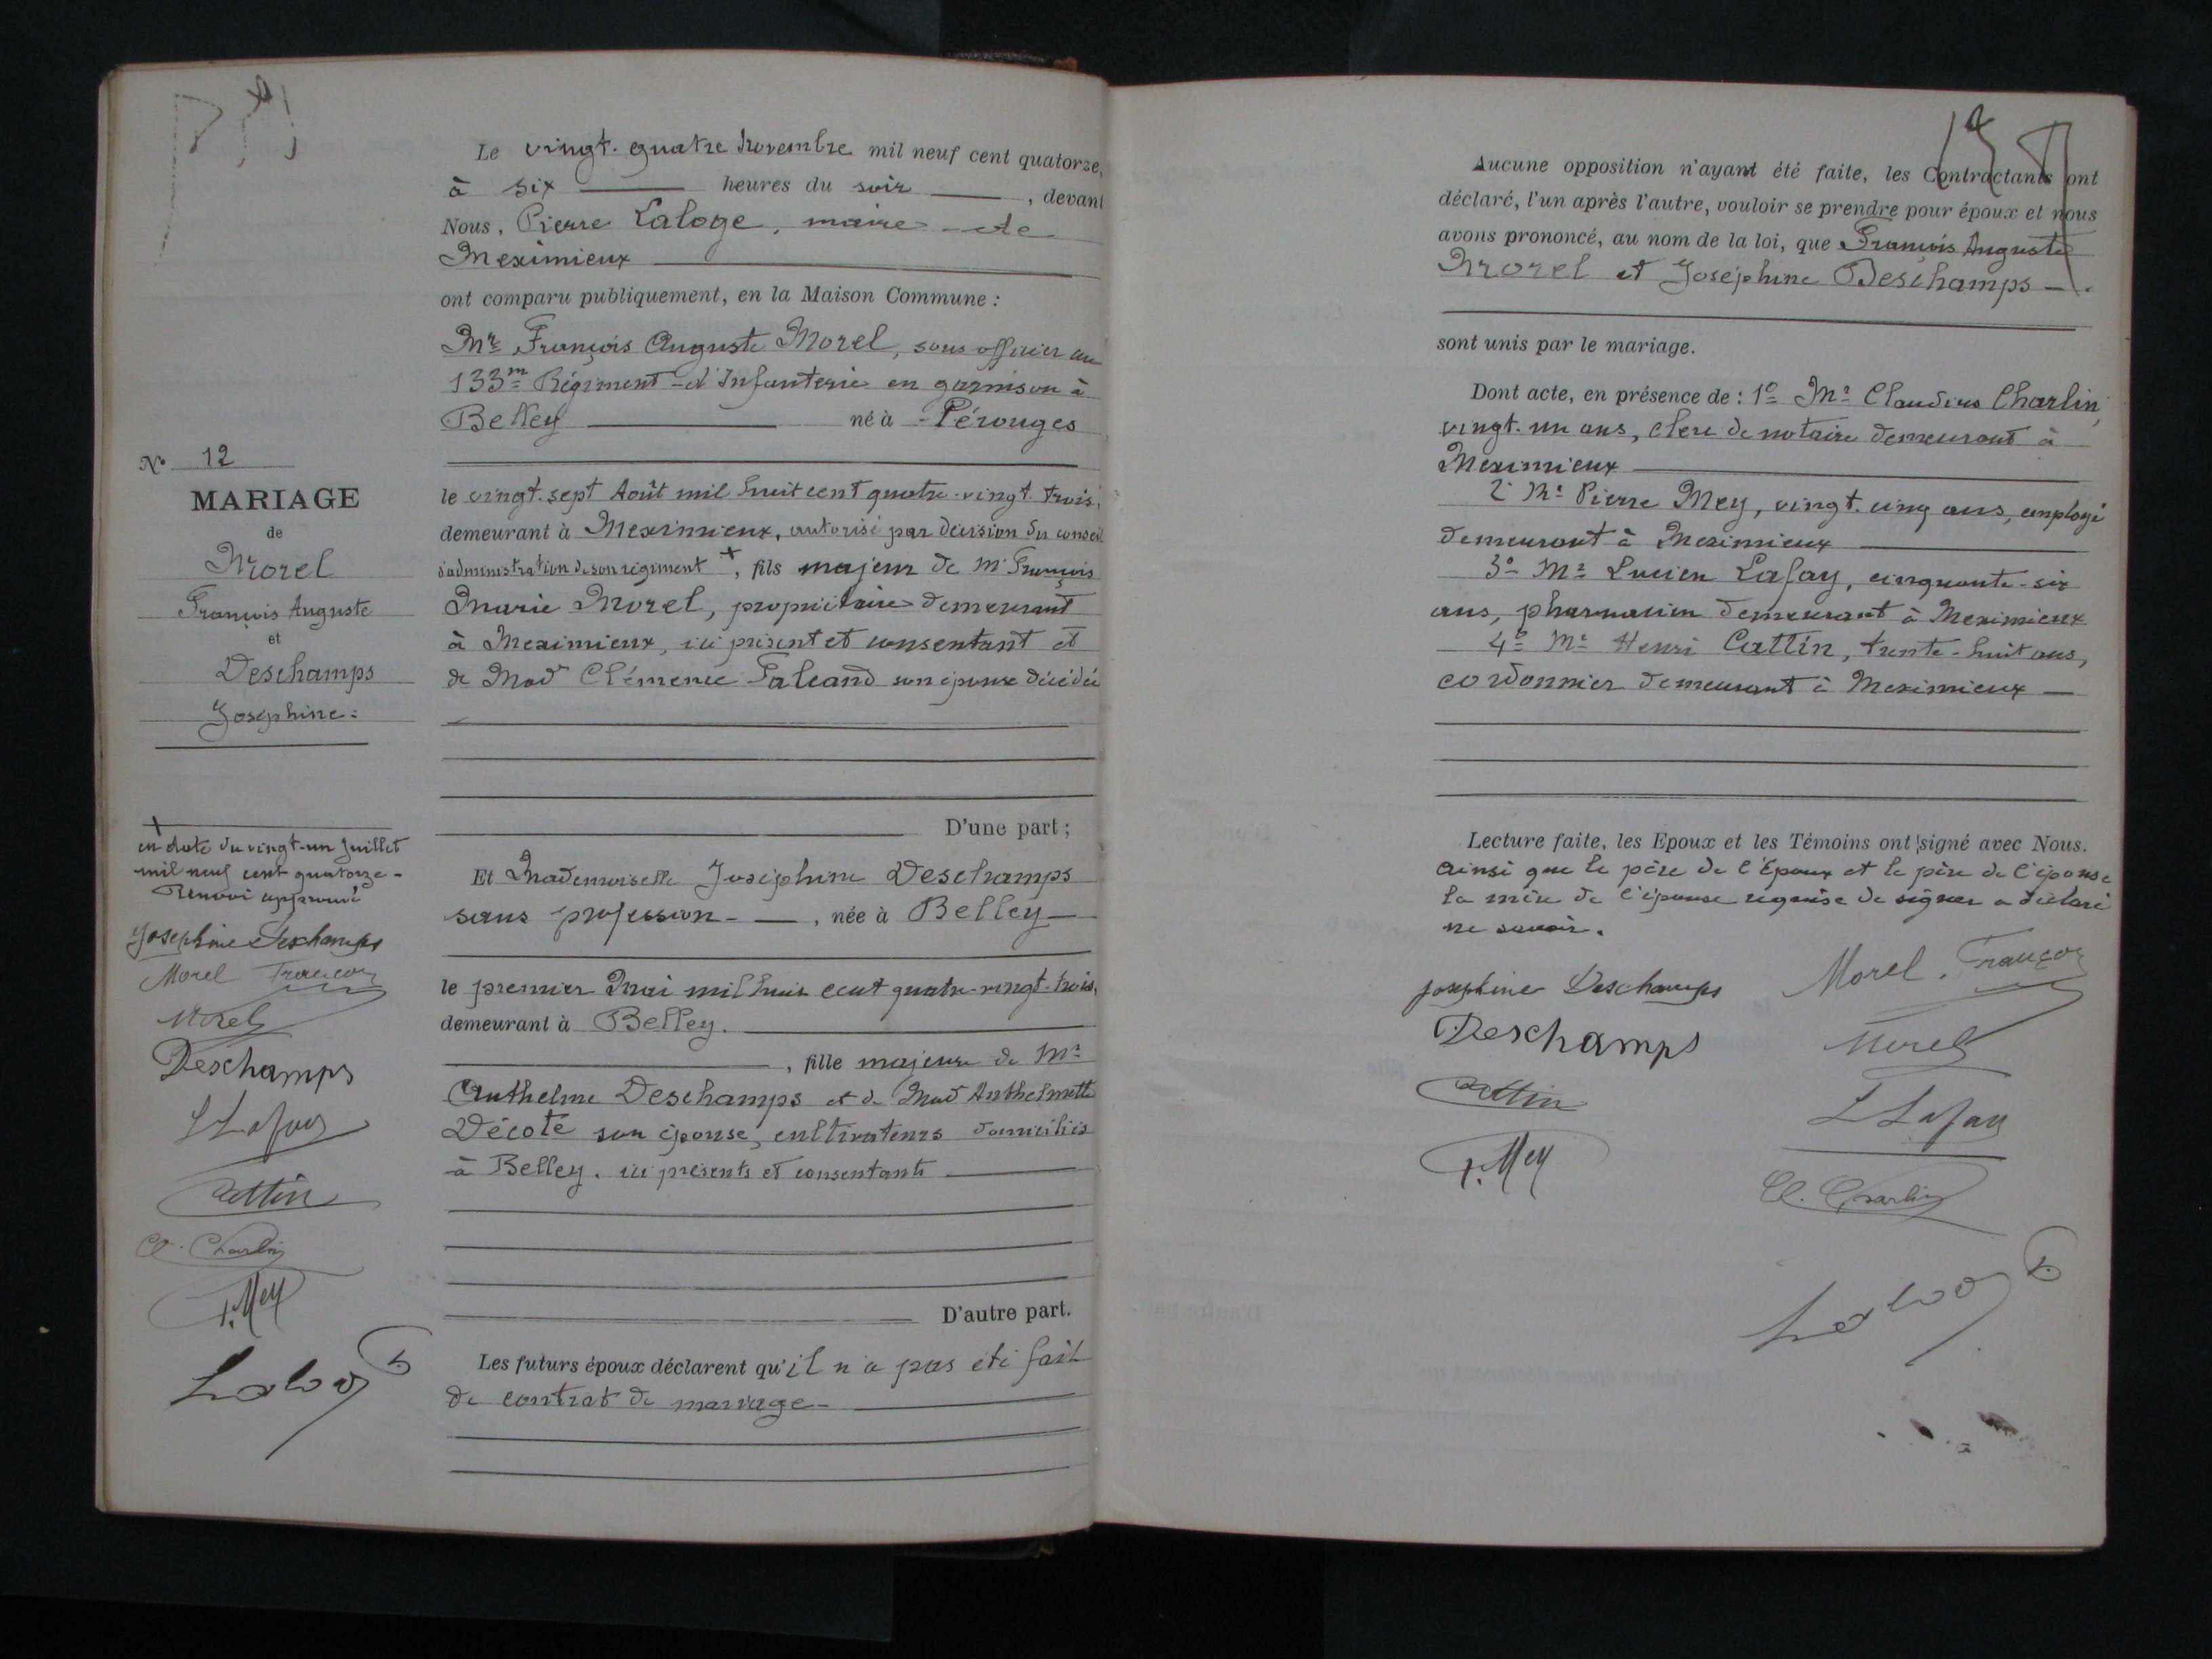 N° 12
MARIAGE
de
Morel
François Auguste
et
Deschamps
Joséphine
+
en date du vingt-un Juillet
mil neuf cent quatorze -
Renvoi approuvé
Joséphine Deschamps
Morel François
Morel
Deschamps
L Lafay
Cattin
Cl. Charlin
P. Mey
Laloge
Le vingt-quatre Novembre mil neuf cent quatorze,
à six heures du soir, devant
Nous, Pierre Laloge, maire de
Meximieux
ont comparu publiquement, en la Maison Commune :
Mr François Auguste Morel, sous officier au
133me Régiment d'Infanterie en garnison à
Belley né à Pérouges
le vingt-sept Août mil huit cent quatre-vingt trois,
demeurant à Meximieux, autorisé par décision du conseil
d'administration de son régiment +, fils majeur de Mr François
Marie Morel, propriétaire demeurant
à Meximieux, ici présent et consentant et
de Mad Clémence son épouse décédée
D'une part ;
Et Mademoiselle Joséphine Deschamps
sans profession, née à Belley
le premier Mai mil huit cent quatre-vingt-trois,
demeurant à Belley.
, fille majeure de Mr
Anthelme Deschamps et de Mad Anthelmette
Décote son épouse, cultivateurs domiciliés
à Belley. ici présents et consentants
D'autre part.
Les futurs époux déclarent qu'il n'a pas été fait
de contrat de mariage -
Aucune opposition n'ayant été faite, les Contractants ont
déclaré, l'un après l'autre, vouloir se prendre pour époux et nous
avons prononcé, au nom de la loi, que François Auguste
Morel et Joséphine Deschamps -
sont unis par le mariage.
Dont acte, en présence de : 1° Mr Claudius Charlin,
vingt-un ans, clerc de notaire demeurant à
Meximieux
2° Mr Pierre Mey, vingt-cinq ans, employé
demeurant à Meximieux
3° Mr Lucien Lafay, cinquante-six
ans, pharmacien demeurant à Meximieux
4° Mr Henri Cattin, trente-huit ans,
cordonnier demeurant à Meximieux
Lecture faite, les Epoux et les Témoins ont signé avec Nous.
ainsi que le père de l'Epoux et le père de l'épouse
la mère de l'épouse requise de signer a déclaré
ne savoir.
Joséphine Deschamps
Morel François
Deschamps
Morel
Cattin
L Lafay
P. Mey
Cl. Charlin
Laloge